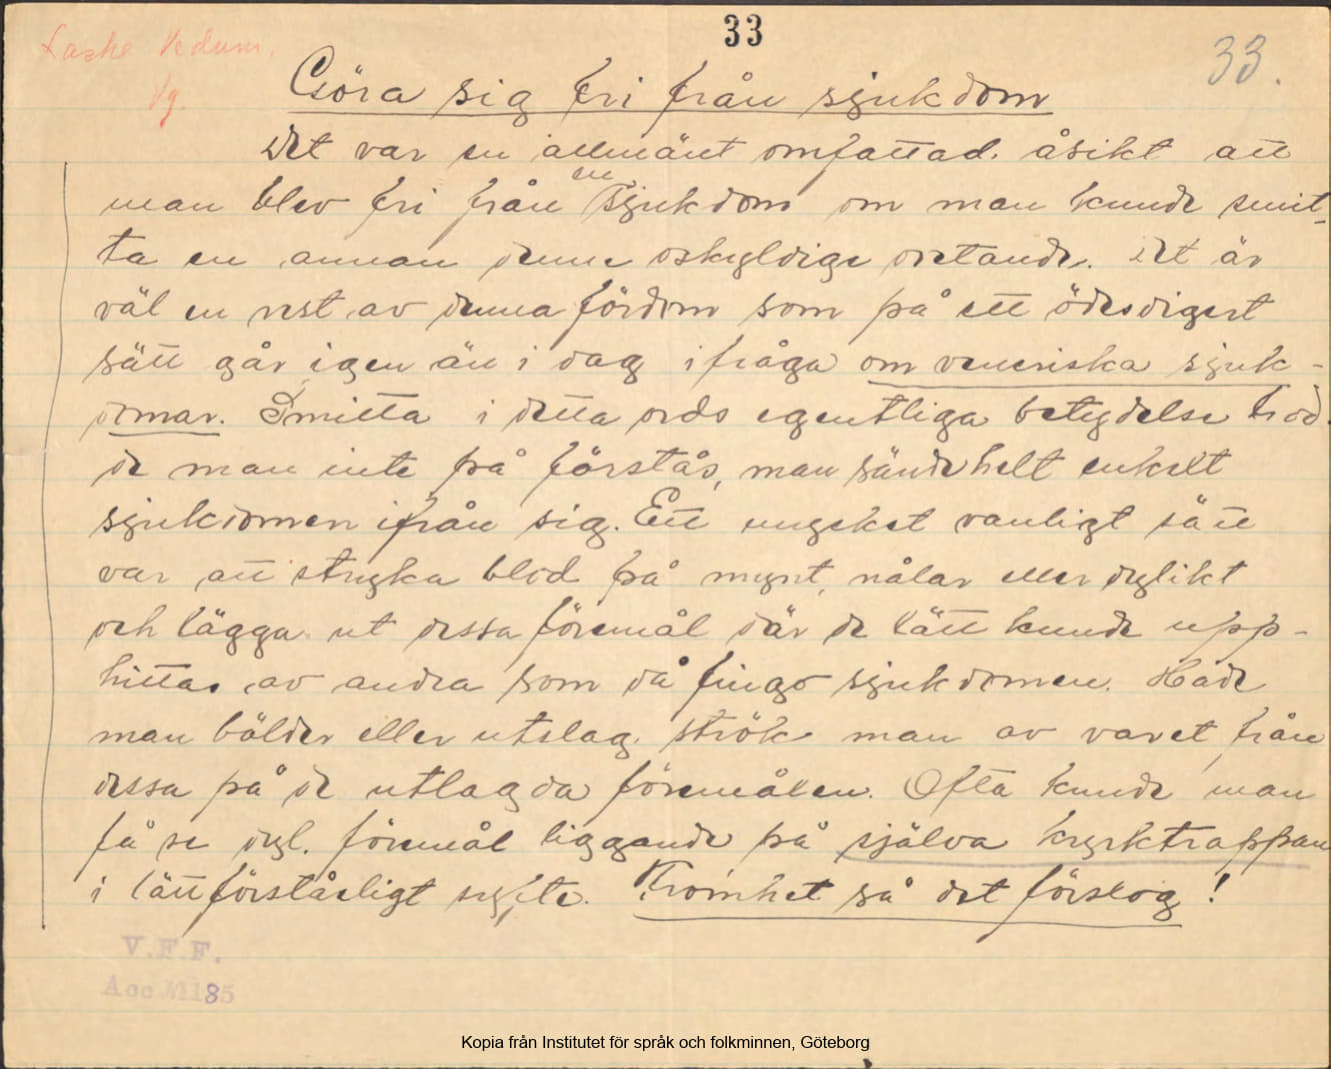 33
Laske Vedum.
33.
Vg.
Göra sig fri från sjukdom
Det var en allmänt omfattad åsikt att
man blev fri från en sjukdom om man kunde smit-
ta en annan denne oskyldige ovetande. Det är
väl en rest av denna fördom som på ett ödesdigert
sätt går igen än i dag ifråga om veneriska sjuk-
domar. Smitta i detta ords egentliga betydelse trod-
de man inte på förstås, man sände helt enkelt
sjukdomen ifrån sig. Ett mycket vanligt sätt
var att stryka blod på mynt, nålar eller dylikt
och lägga ut dessa föremål där de lätt kunde upp-
hittas av andra som då fingo sjukdomen. Hade
man bölder eller utslag strök man av varet från
dessa på de utlagda föremålen. Ofta kunde man
få se dyl. föremål liggande på själva kyrktrappan
i lätt förståeligt syfte. Fromhet så det förslog!
V.F.F.
Acc. № 1185
Kopia från Institutet för språk och folkminnen, Göteborg